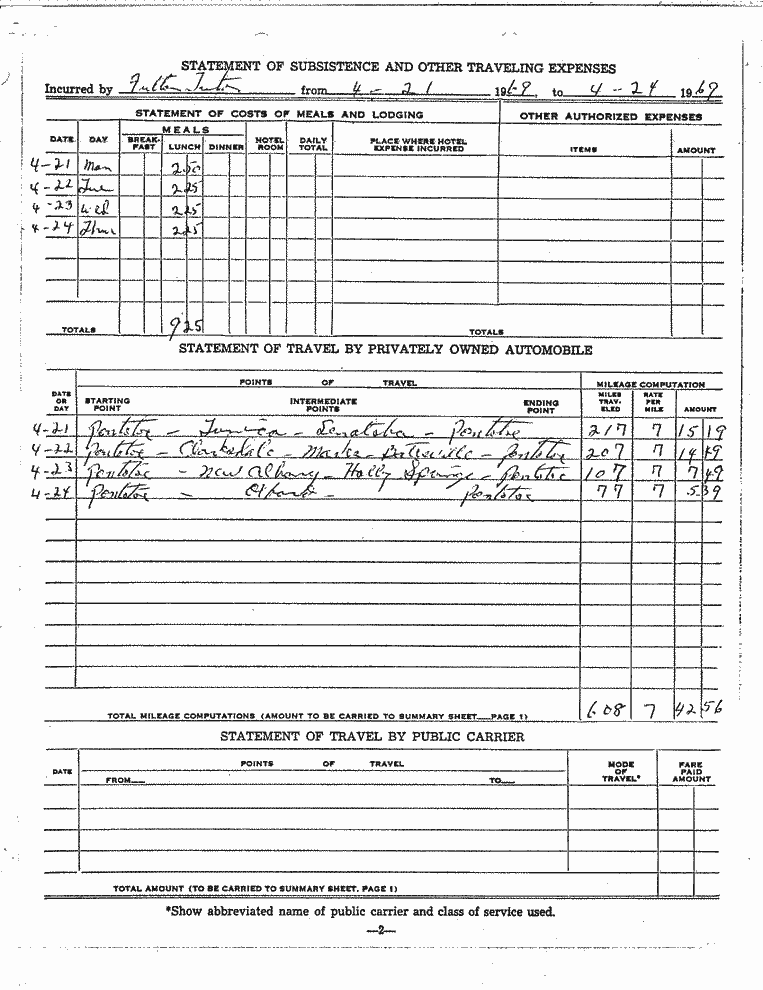 STATEMENT OF SUBSISTENCE AND OTHER TRAVELING EXPENSES
Incurred by Fulton Tutor from 4-21 1969, to 4-24 1969
STATEMENT OF COSTS OF MEALS AND LODGING OTHER AUTHORIZED EXPENSES
MEALS
DATE DAY BREAK-FAST LUNCH DINNER HOTEL ROOM DAILY TOTAL PLACE WHERE HOTEL EXPENSE INCURRED ITEMS AMOUNT
4-21 Mon 2 50
4-22 Tue 2 25
4-23 Wed 2 25
4-24 Thur 2 25
TOTALS 9 25 TOTALS
STATEMENT OF TRAVEL BY PRIVATELY OWNED AUTOMOBILE
POINTS OF TRAVEL MILEAGE COMPUTATION
DATE OR DAY STARTING POINT INTERMEDIATE POINTS ENDING POINT MILES TRAV-ELED RATE PER MILE AMOUNT
4-21 Pontotoc - Tunica - Senatobia - Pontotoc 217 7 15 19
4-22 Pontotoc - Clarksdale - Marks - Batesville - Pontotoc 207 7 14 49
4-23 Pontotoc - New Albany - Holly Springs - Pontotoc 107 7 7 49
4-24 Pontotoc - - Pontotoc 77 7 5 39
TOTAL MILEAGE COMPUTATIONS (AMOUNT TO BE CARRIED TO SUMMARY SHEET—PAGE 1) 608 7 42 56
STATEMENT OF TRAVEL BY PUBLIC CARRIER
DATE POINTS OF TRAVEL MODE OF TRAVEL* FARE PAID AMOUNT
FROM— TO—
TOTAL AMOUNT (TO BE CARRIED TO SUMMARY SHEET. PAGE 1)
*Show abbreviated name of public carrier and class of service used.
—2—